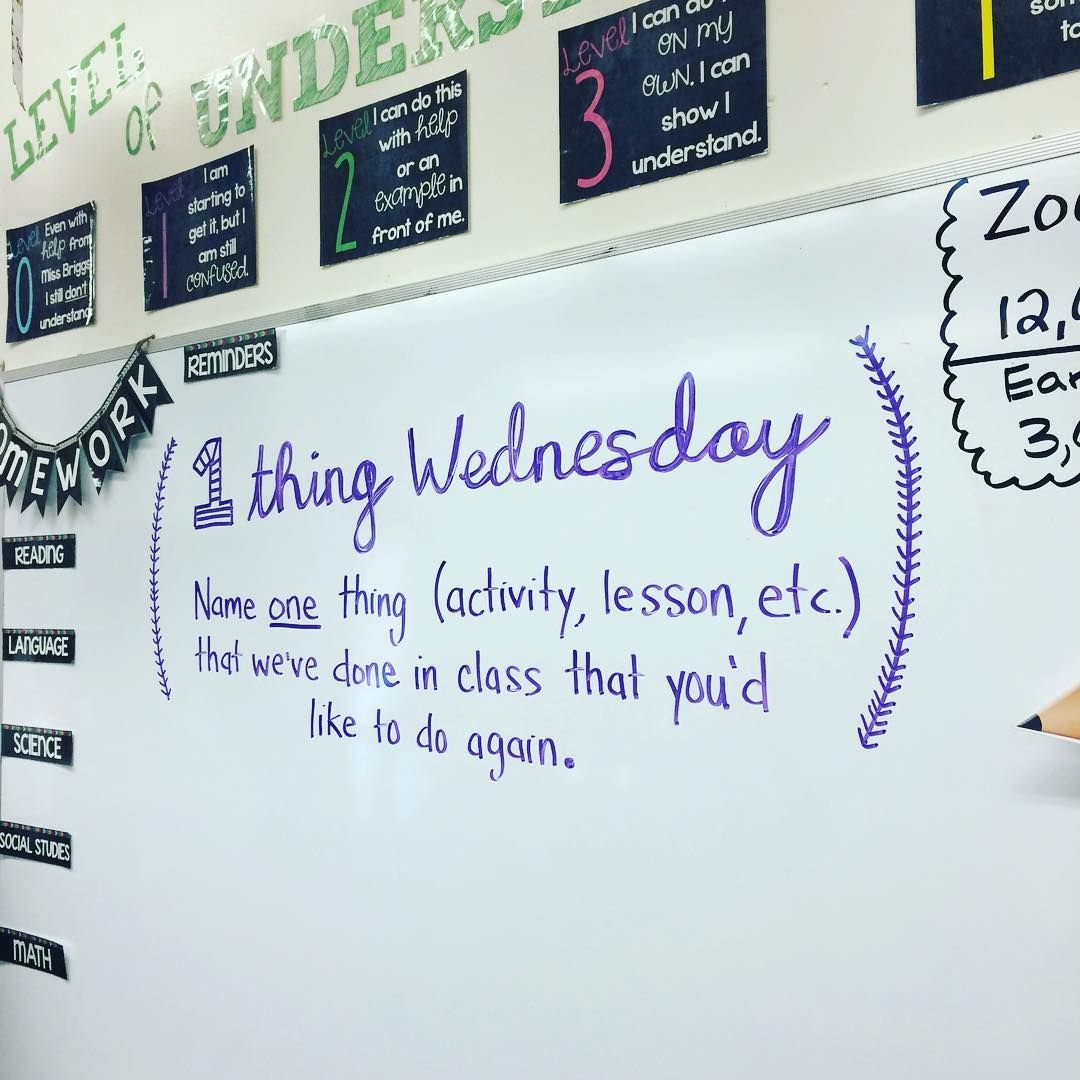 LEVEL OF UNDERST
Level 0
Even with
help from
Miss Briggs
I still don't
understand
Level 1
I am
starting to
get it, but I
am still
confused.
Level 2
I can do this
with help
or an
example in
front of me.
Level 3
I can do
ON my
OWN. I can
show I
understand.
OMEWORK
REMINDERS
1 thing Wednesday
Name one thing (activity, lesson, etc.)
that we've done in class that you'd
like to do again.
READING
LANGUAGE
SCIENCE
SOCIAL STUDIES
MATH
12,
3,